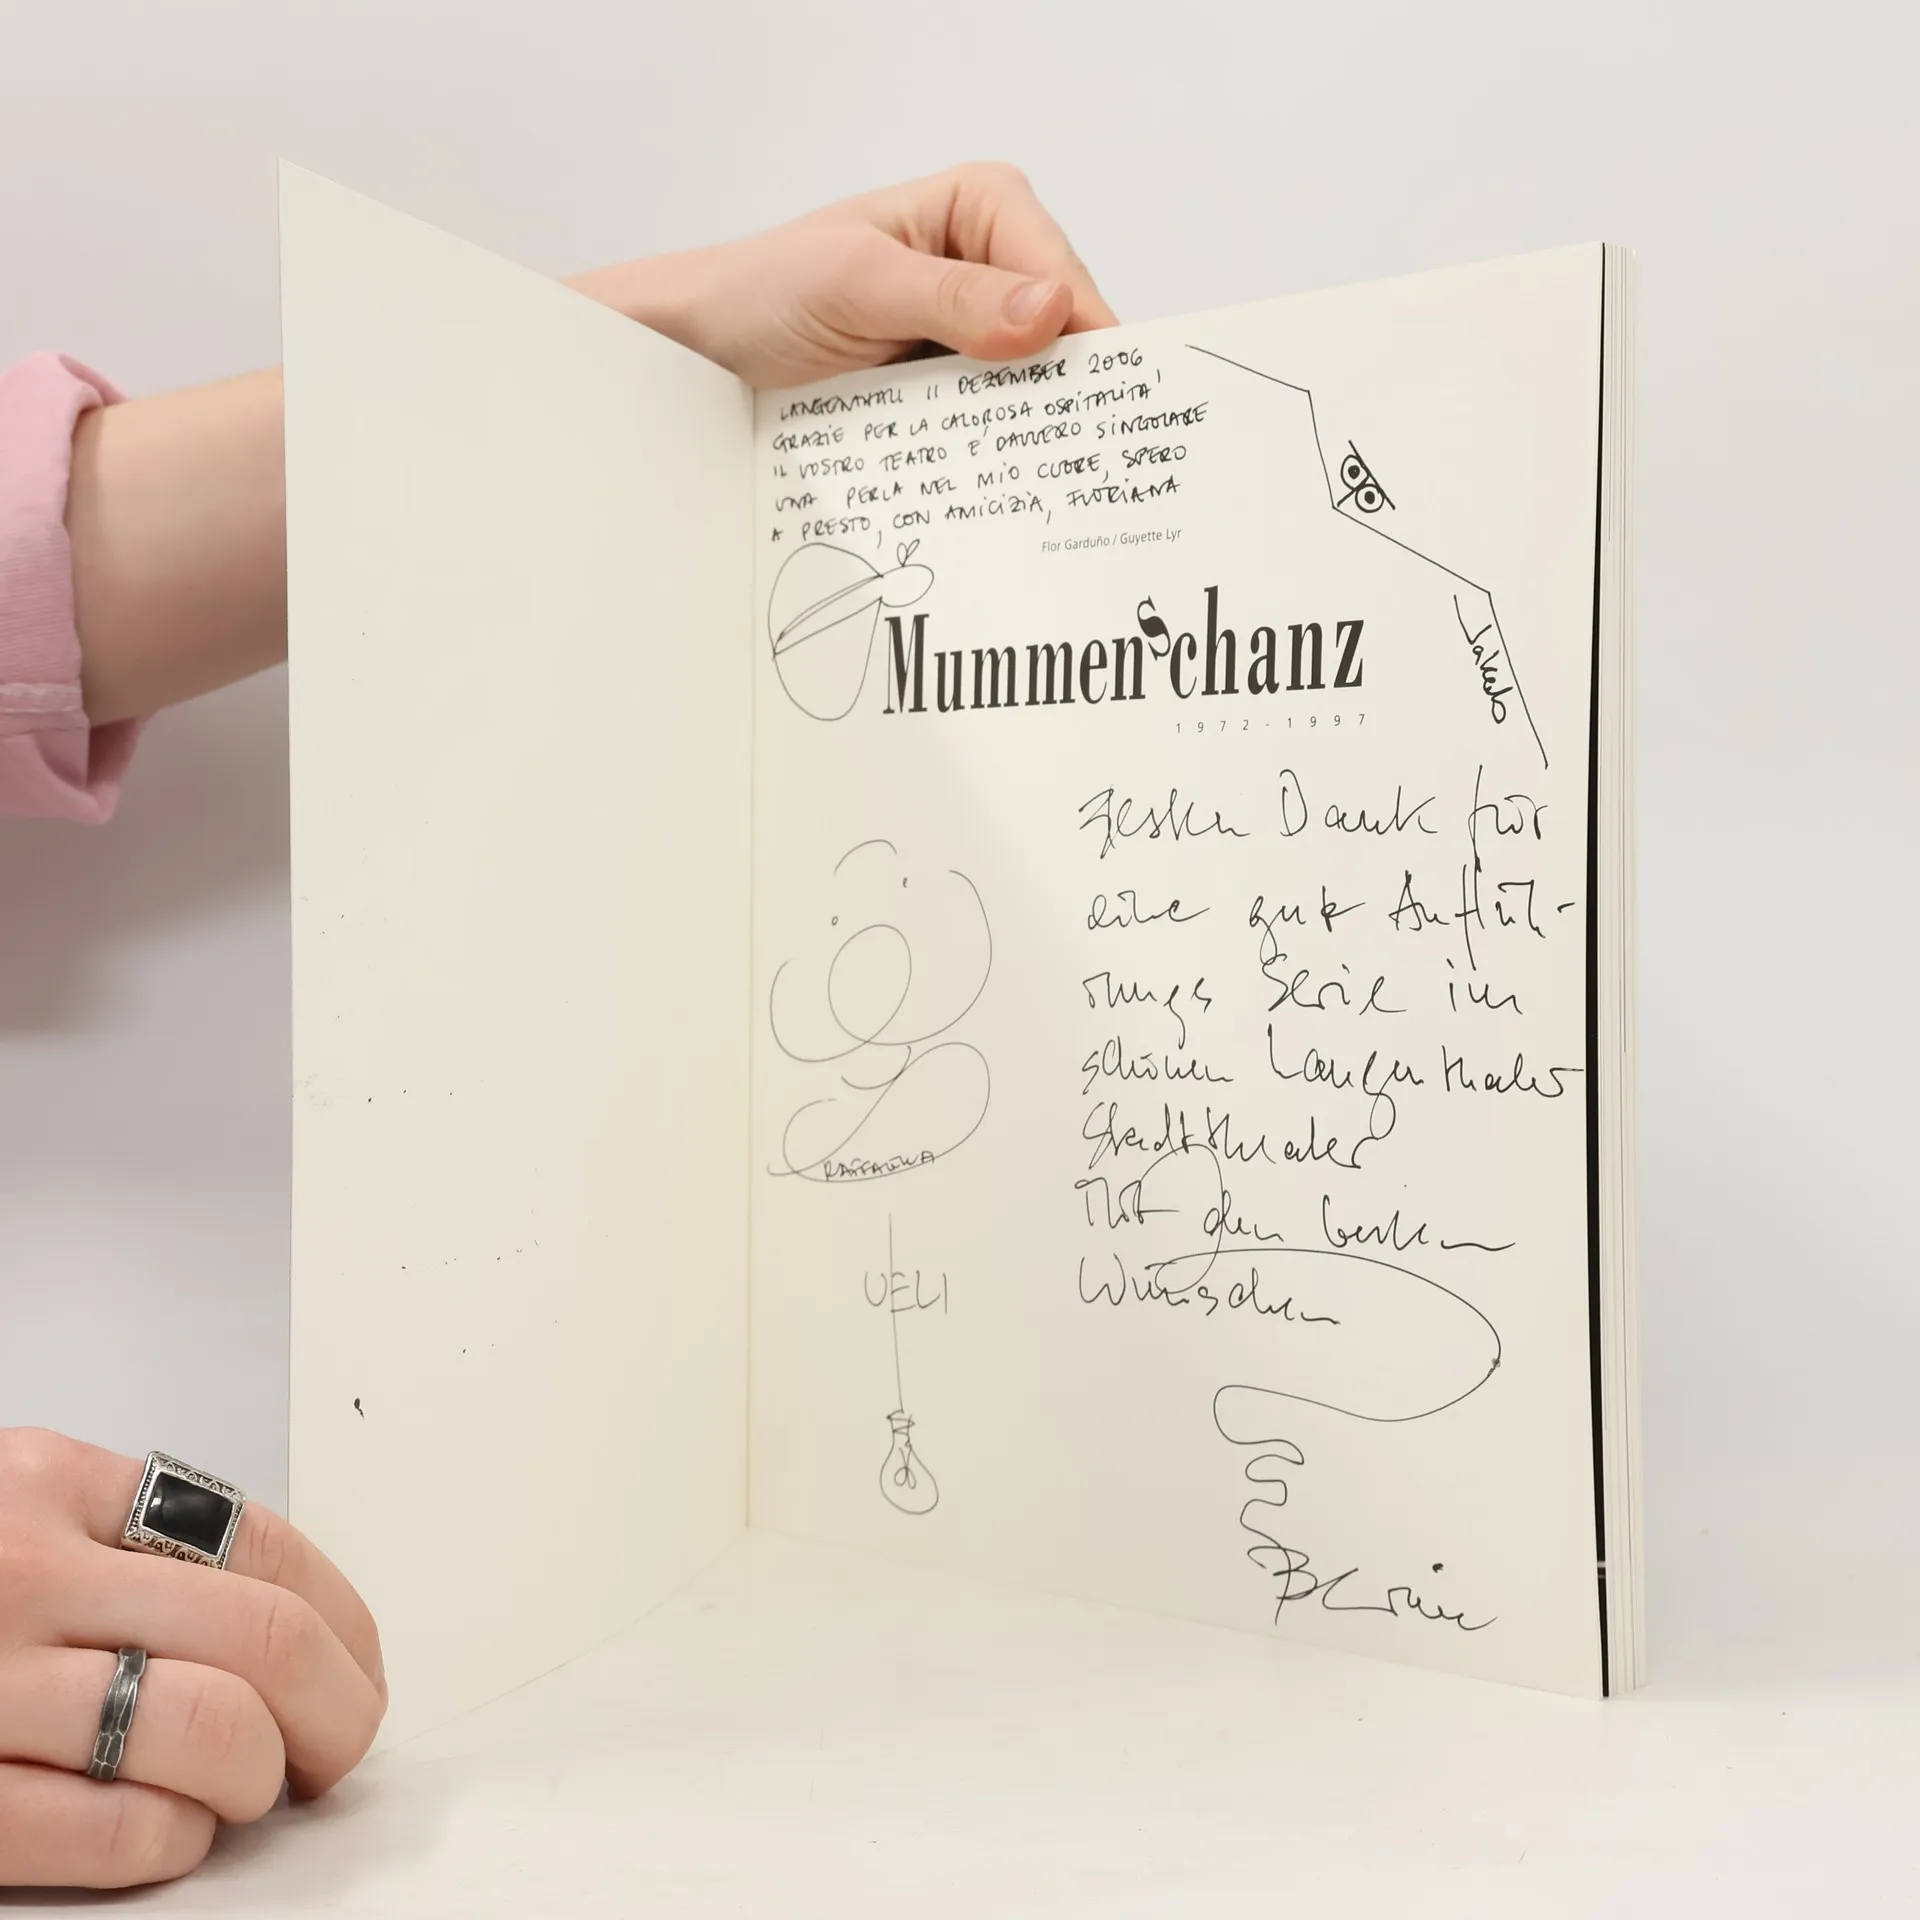 LANGENTHAL 11 DEZEMBER 2006
GRAZIE PER LA CALOROSA OSPITALITA'
IL VOSTRO TEATRO E' DAVVERO SINGOLARE
UNA PERLA NEL MIO CUORE, SPERO
A PRESTO, CON AMICIZIA, FLORIANA
Flor Garduño / Guyette Lyr
Mummenschanz
1972-1997
Jakob
Besten Dank für
eine gute Auffüh-
rungs Serie im
schönen Langenthaler
Stadttheater
Mit den besten
Wünschen
RAFFAELLA
UELI